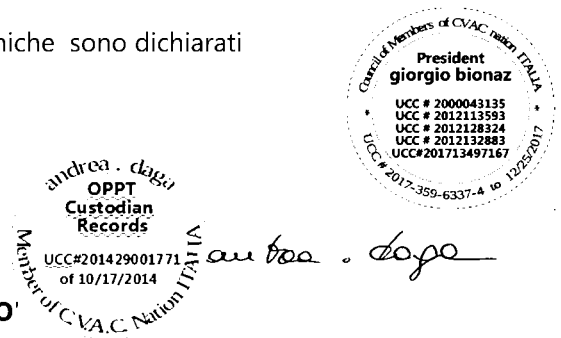 niche sono dichiarati
Council of Members of CVAC nation ITALIA
President
giorgio bionaz
UCC # 2000043135
UCC # 2012113593
UCC # 2012128324
UCC # 2012132883
UCC#201713497167
* UCC# 2017-359-6337-4 to 12/25/2017 *
andrea . daga
OPPT
Custodian
Records
UCC#201429001771
of 10/17/2014
Member of C.V.A.C. Nation ITALIA
andrea . daga
O'